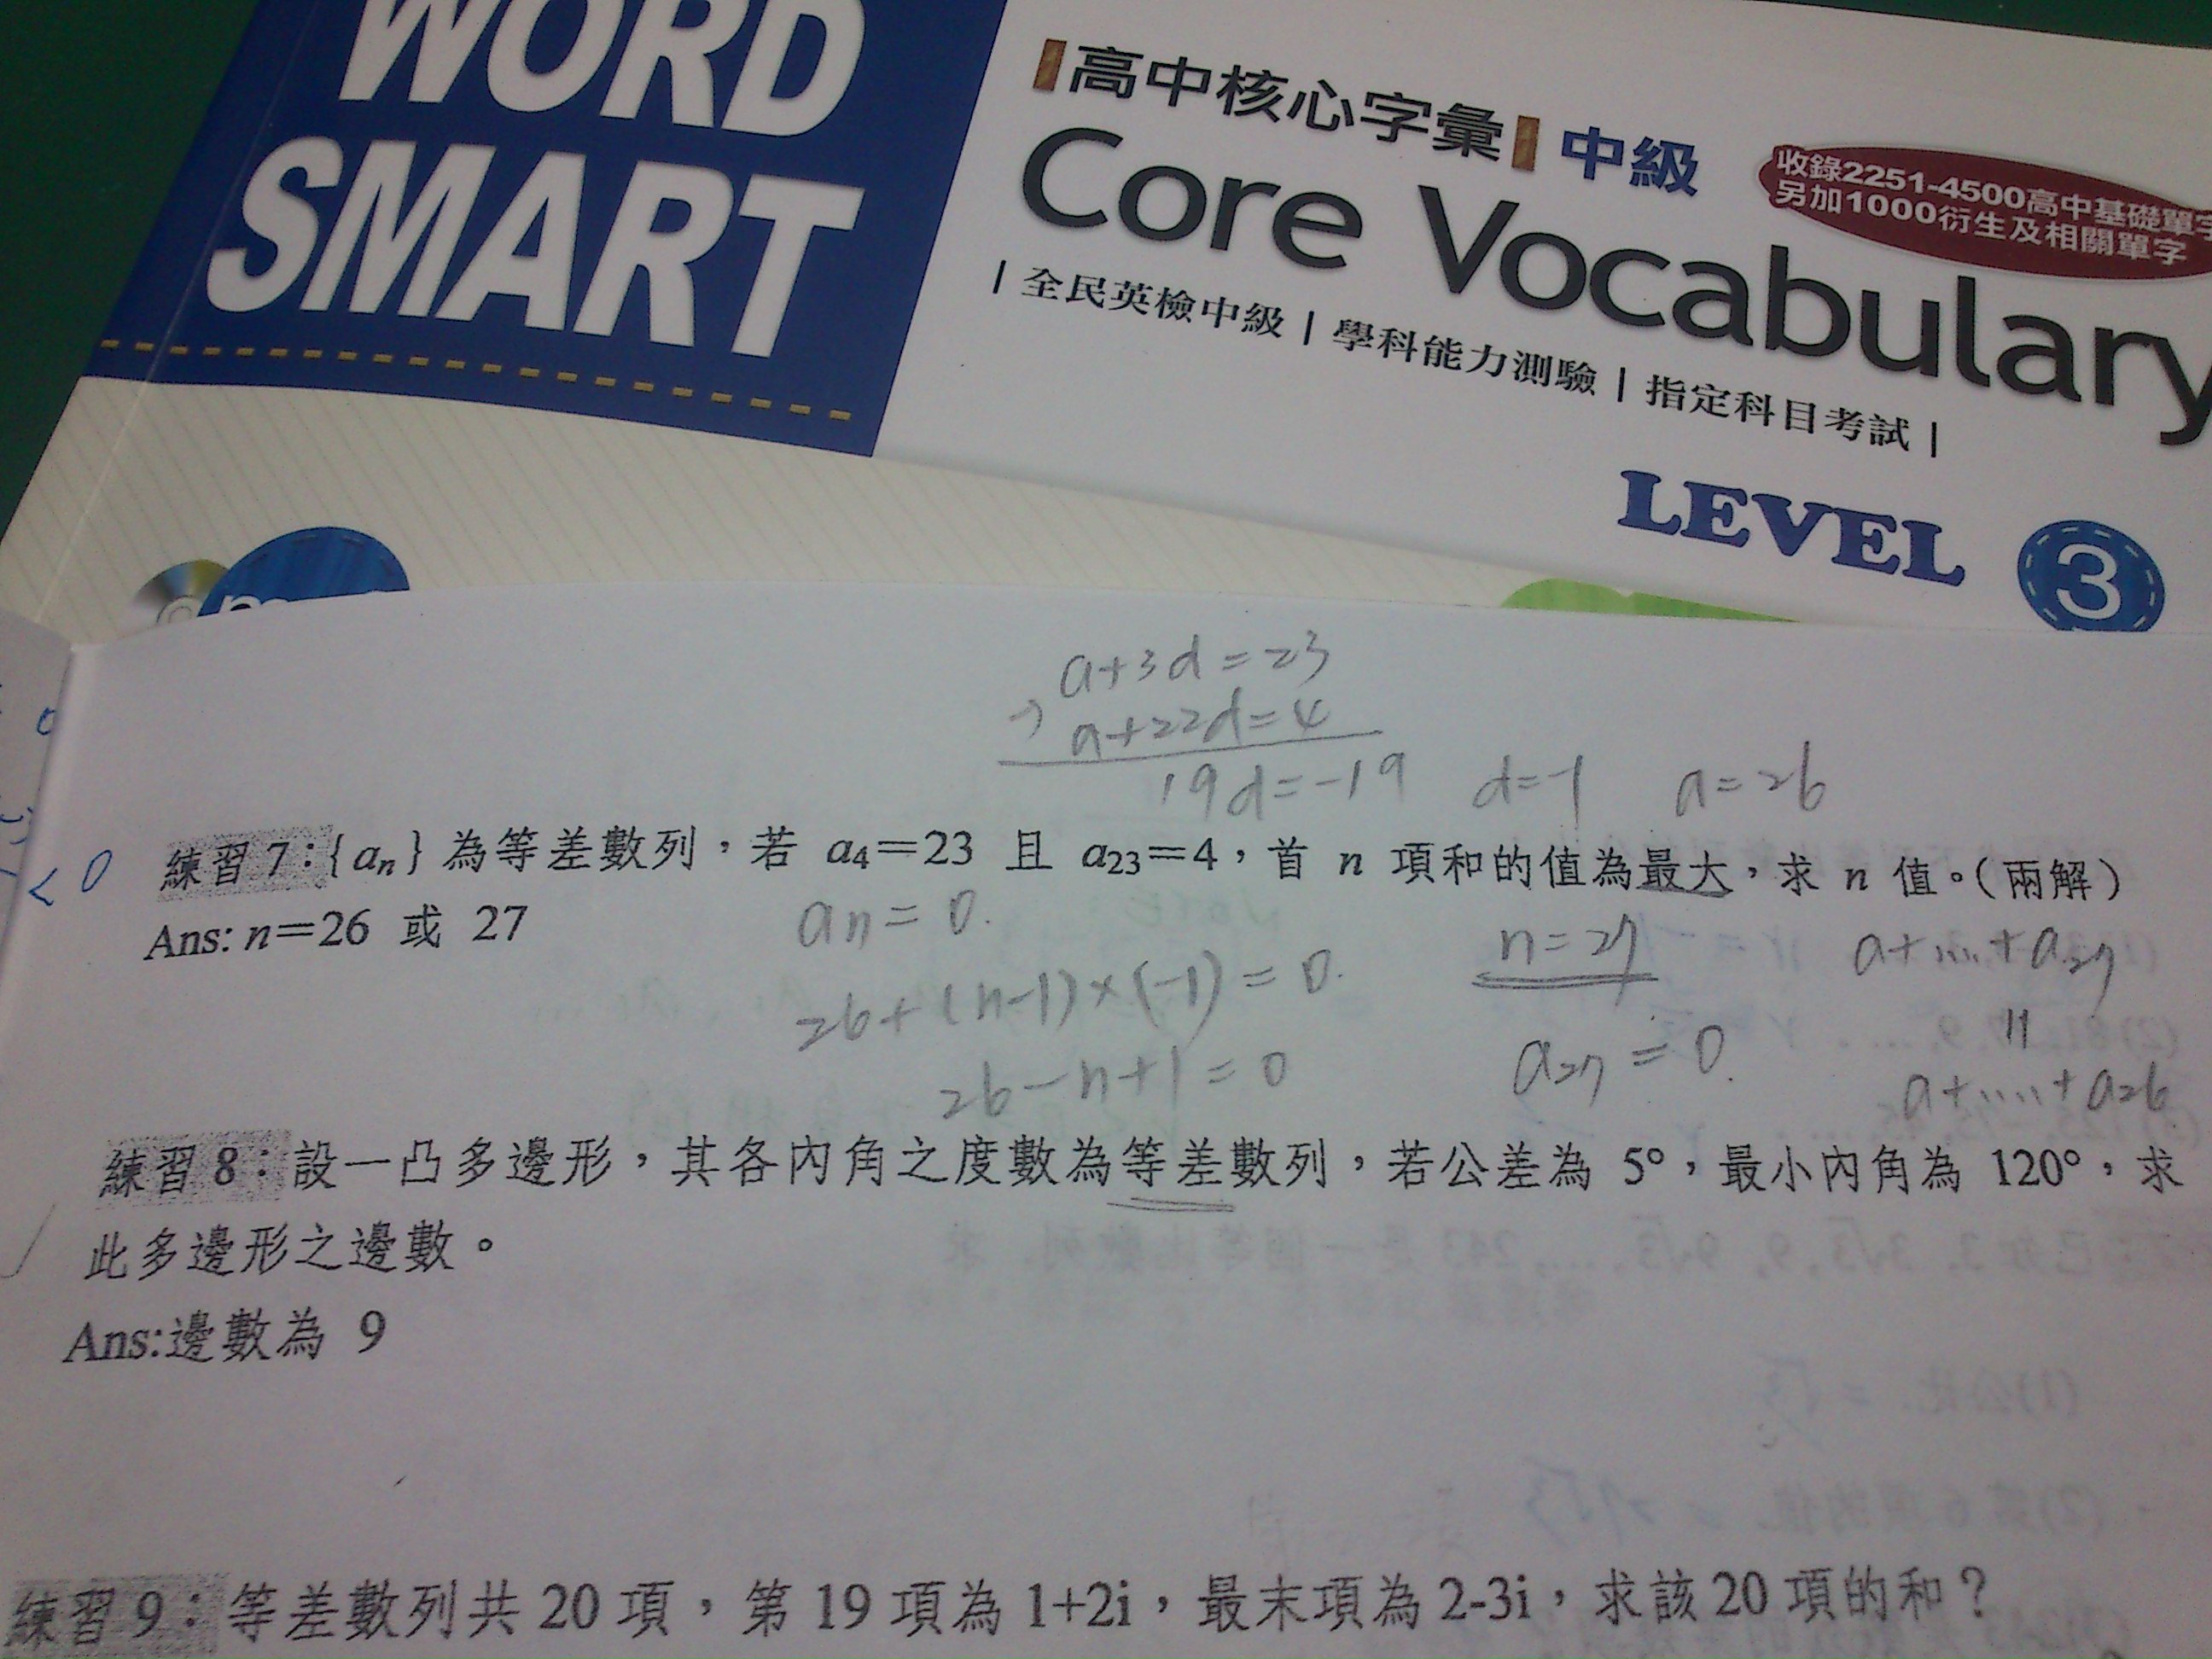 WORD
SMART
高中核心字彙 中級
Core Vocabulary
收錄2251-4500高中基礎單字
另加1000衍生及相關單字
| 全民英檢中級 | 學科能力測驗 | 指定科目考試 |
LEVEL 3
a+3d=23
a+22d=4
19d=-19 d=-1 a=26
練習 7：{an} 為等差數列，若 a4=23 且 a23=4，首 n 項和的值為最大，求 n 值。(兩解)
<0
Ans: n=26 或 27
an=0.
n=27
a+.....+a27
26+(n-1)×(-1)=0.
26-n+1=0
a27=0.
=
a+.....+a26
練習 8：設一凸多邊形，其各內角之度數為等差數列，若公差為 5°，最小內角為 120°，求
此多邊形之邊數。
Ans:邊數為 9
練習 9：等差數列共 20 項，第 19 項為 1+2i，最末項為 2-3i，求該 20 項的和？